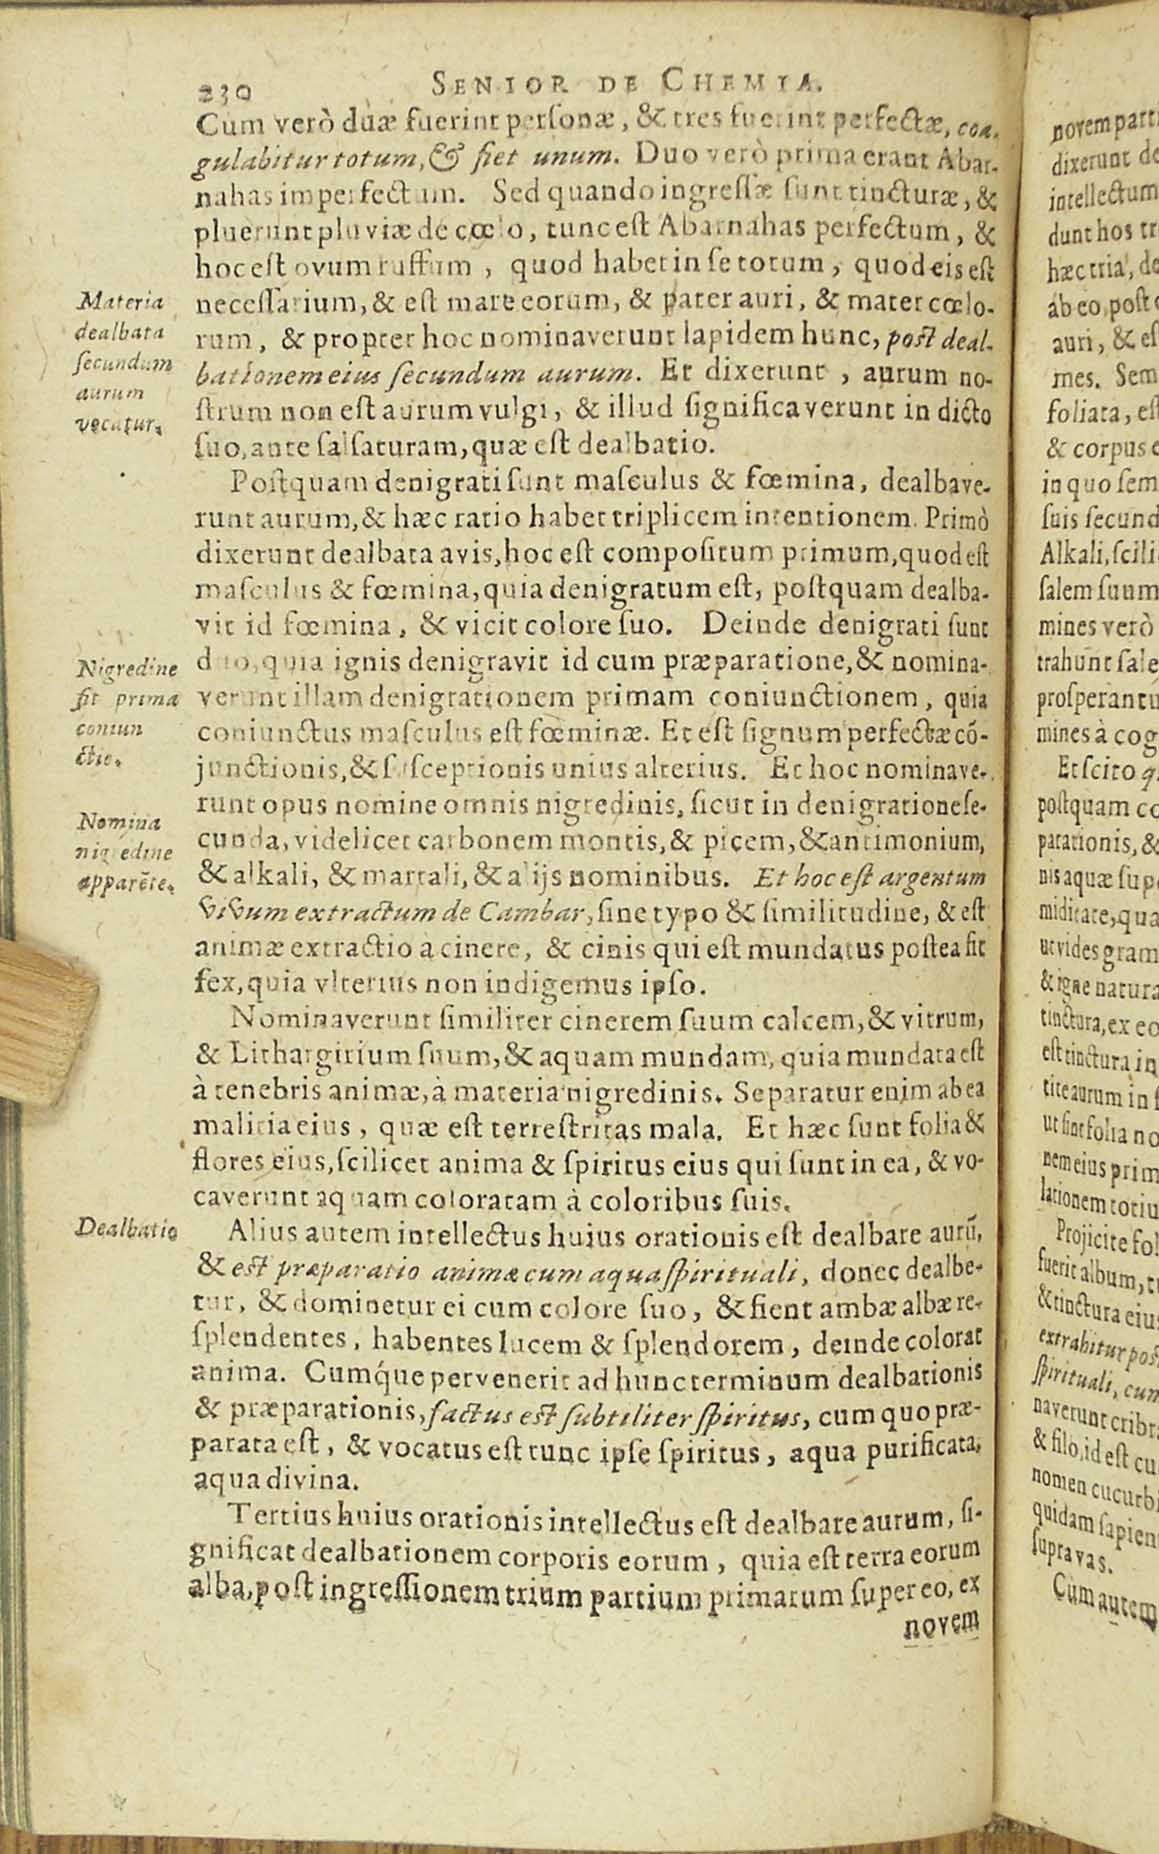 230 SENIOR DE CHEMIA.
Cum verò duæ fuerint personæ, & tres fuerint perfectæ, coa-
gulabitur totum, & fiet unum. Duo verò prima erant Abar-
nahas imperfectum. Sed quando ingressæ sunt tincturæ, &
pluerunt pluviæ de cœlo, tunc est Abarnahas perfectum, &
hoc est ovum ruffum, quod habet in se totum, quod eis est
necessarium, & est mare eorum, & pater auri, & mater cœlo-
rum, & propter hoc nominaverunt lapidem hunc, post deal-
bationem eius secundum aurum. Et dixerunt, aurum no-
strum non est aurum vulgi, & illud significaverunt in dicto
suo, ante salsaturam, quæ est dealbatio.
Materia
dealbata
secundum
aurum
vocatur.
Postquam denigrati sunt masculus & fœmina, dealbave-
runt aurum, & hæc ratio habet triplicem intentionem. Primò
dixerunt dealbata avis, hoc est compositum primum, quod est
masculus & fœmina, quia denigratum est, postquam dealba-
vit id fœmina, & vicit colore suo. Deinde denigrati sunt
duo, quia ignis denigravit id cum præparatione, & nomina-
verunt illam denigrationem primam coniunctionem, quia
coniunctus masculus est fœminæ. Et est signum perfectæ cō-
junctionis, & susceptionis unius alterius. Et hoc nominave-
runt opus nomine omnis nigredinis, sicut in denigratione se-
cunda, videlicet carbonem montis, & picem, & antimonium,
& alkali, & martali, & alijs nominibus. Et hoc est argentum
vivum extractum de Cambar, sine typo & similitudine, & est
animæ extractio a cinere, & cinis qui est mundatus postea fit
fex, quia vlterius non indigemus ipso.
Nigredine
fit prima
coniun
ctio.
Nomina
nigredine
apparēte.
Nominaverunt similiter cinerem suum calcem, & vitrum,
& Lithargirium suum, & aquam mundam, quia mundata est
à tenebris animæ, à materia nigredinis. Separatur enim ab ea
malitia eius, quæ est terrestritas mala. Et hæc sunt folia &
flores eius, scilicet anima & spiritus eius qui sunt in ea, & vo-
caverunt aquam coloratam à coloribus suis.
Dealbatio
Alius autem intellectus huius orationis est dealbare aurū,
& est præparatio animæ cum aqua spirituali, donec dealbe-
tur, & dominetur ei cum colore suo, & fient ambæ albæ re-
splendentes, habentes lucem & splendorem, deinde colorat
anima. Cumq́ue pervenerit ad hunc terminum dealbationis
& præparationis, factus est subtiliter spiritus, cum quo præ-
parata est, & vocatus est tunc ipse spiritus, aqua purificata,
aqua divina.
Tertius huius orationis intellectus est dealbare aurum, si-
gnificat dealbationem corporis eorum, quia est terra eorum
alba, post ingressionem trium partium primarum super eo, ex
novem
novem parti
dixerunt de
intellectum
dunt hos tr
hæc tria, de
ab eo, post
auri, & es
mes. Sem
foliata, est
& corpus e
in quo sem
suis secund
Alkali, scili
salem suum
mines verò
trahunt sale
prosperantu
mines à cog
Et scito q
postquam co
parationis, &
nis aquæ supe
miditate, qua
ut vides gram
& igne natura
tinctura, ex eo
est tinctura in
tite aurum in s
ut sint folia no
nem eius prim
lationem totiu
Projicite fol
fuerit album, t
& tinctura eius
extrahitur post
spirituali, cum
naverunt cribr
& filo, id est cu
nomen cucurbi
quidam sapien
supra vas.
Cum autem